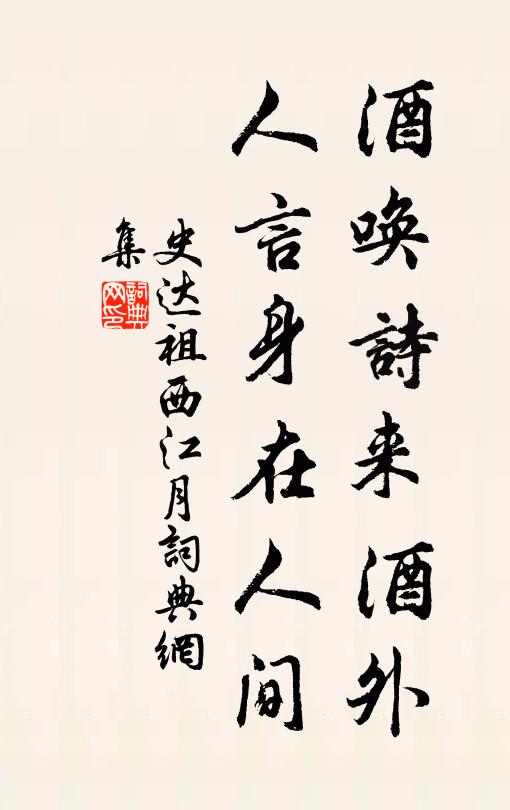 酒唤詩来酒外
人言身在人间
史达祖西江月詞典網
集
詞典
网印